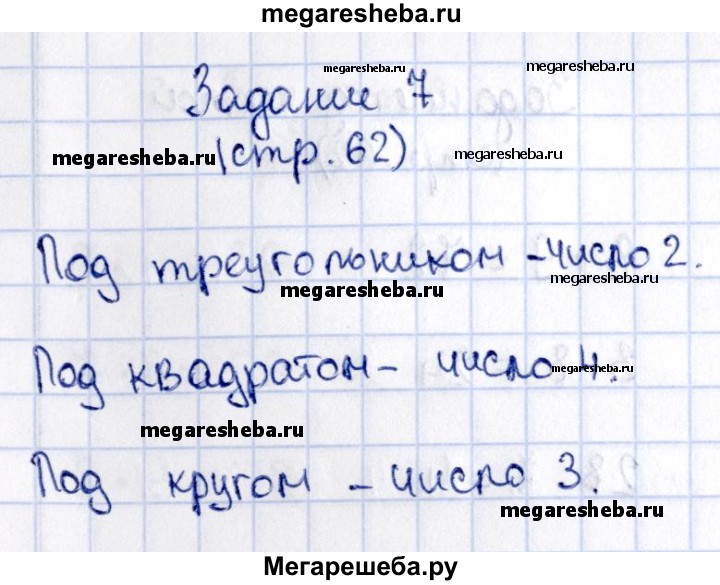 megaresheba.ru
Задание 7
megaresheba.ru
megaresheba.ru
megaresheba.ru
(стр. 62)
megaresheba.ru
Под треугольником - число 2.
megaresheba.ru
megaresheba.ru
Под квадратом - число 4.
megaresheba.ru
megaresheba.ru
Под кругом - число 3.
megaresheba.ru
Мегарешеба.ру